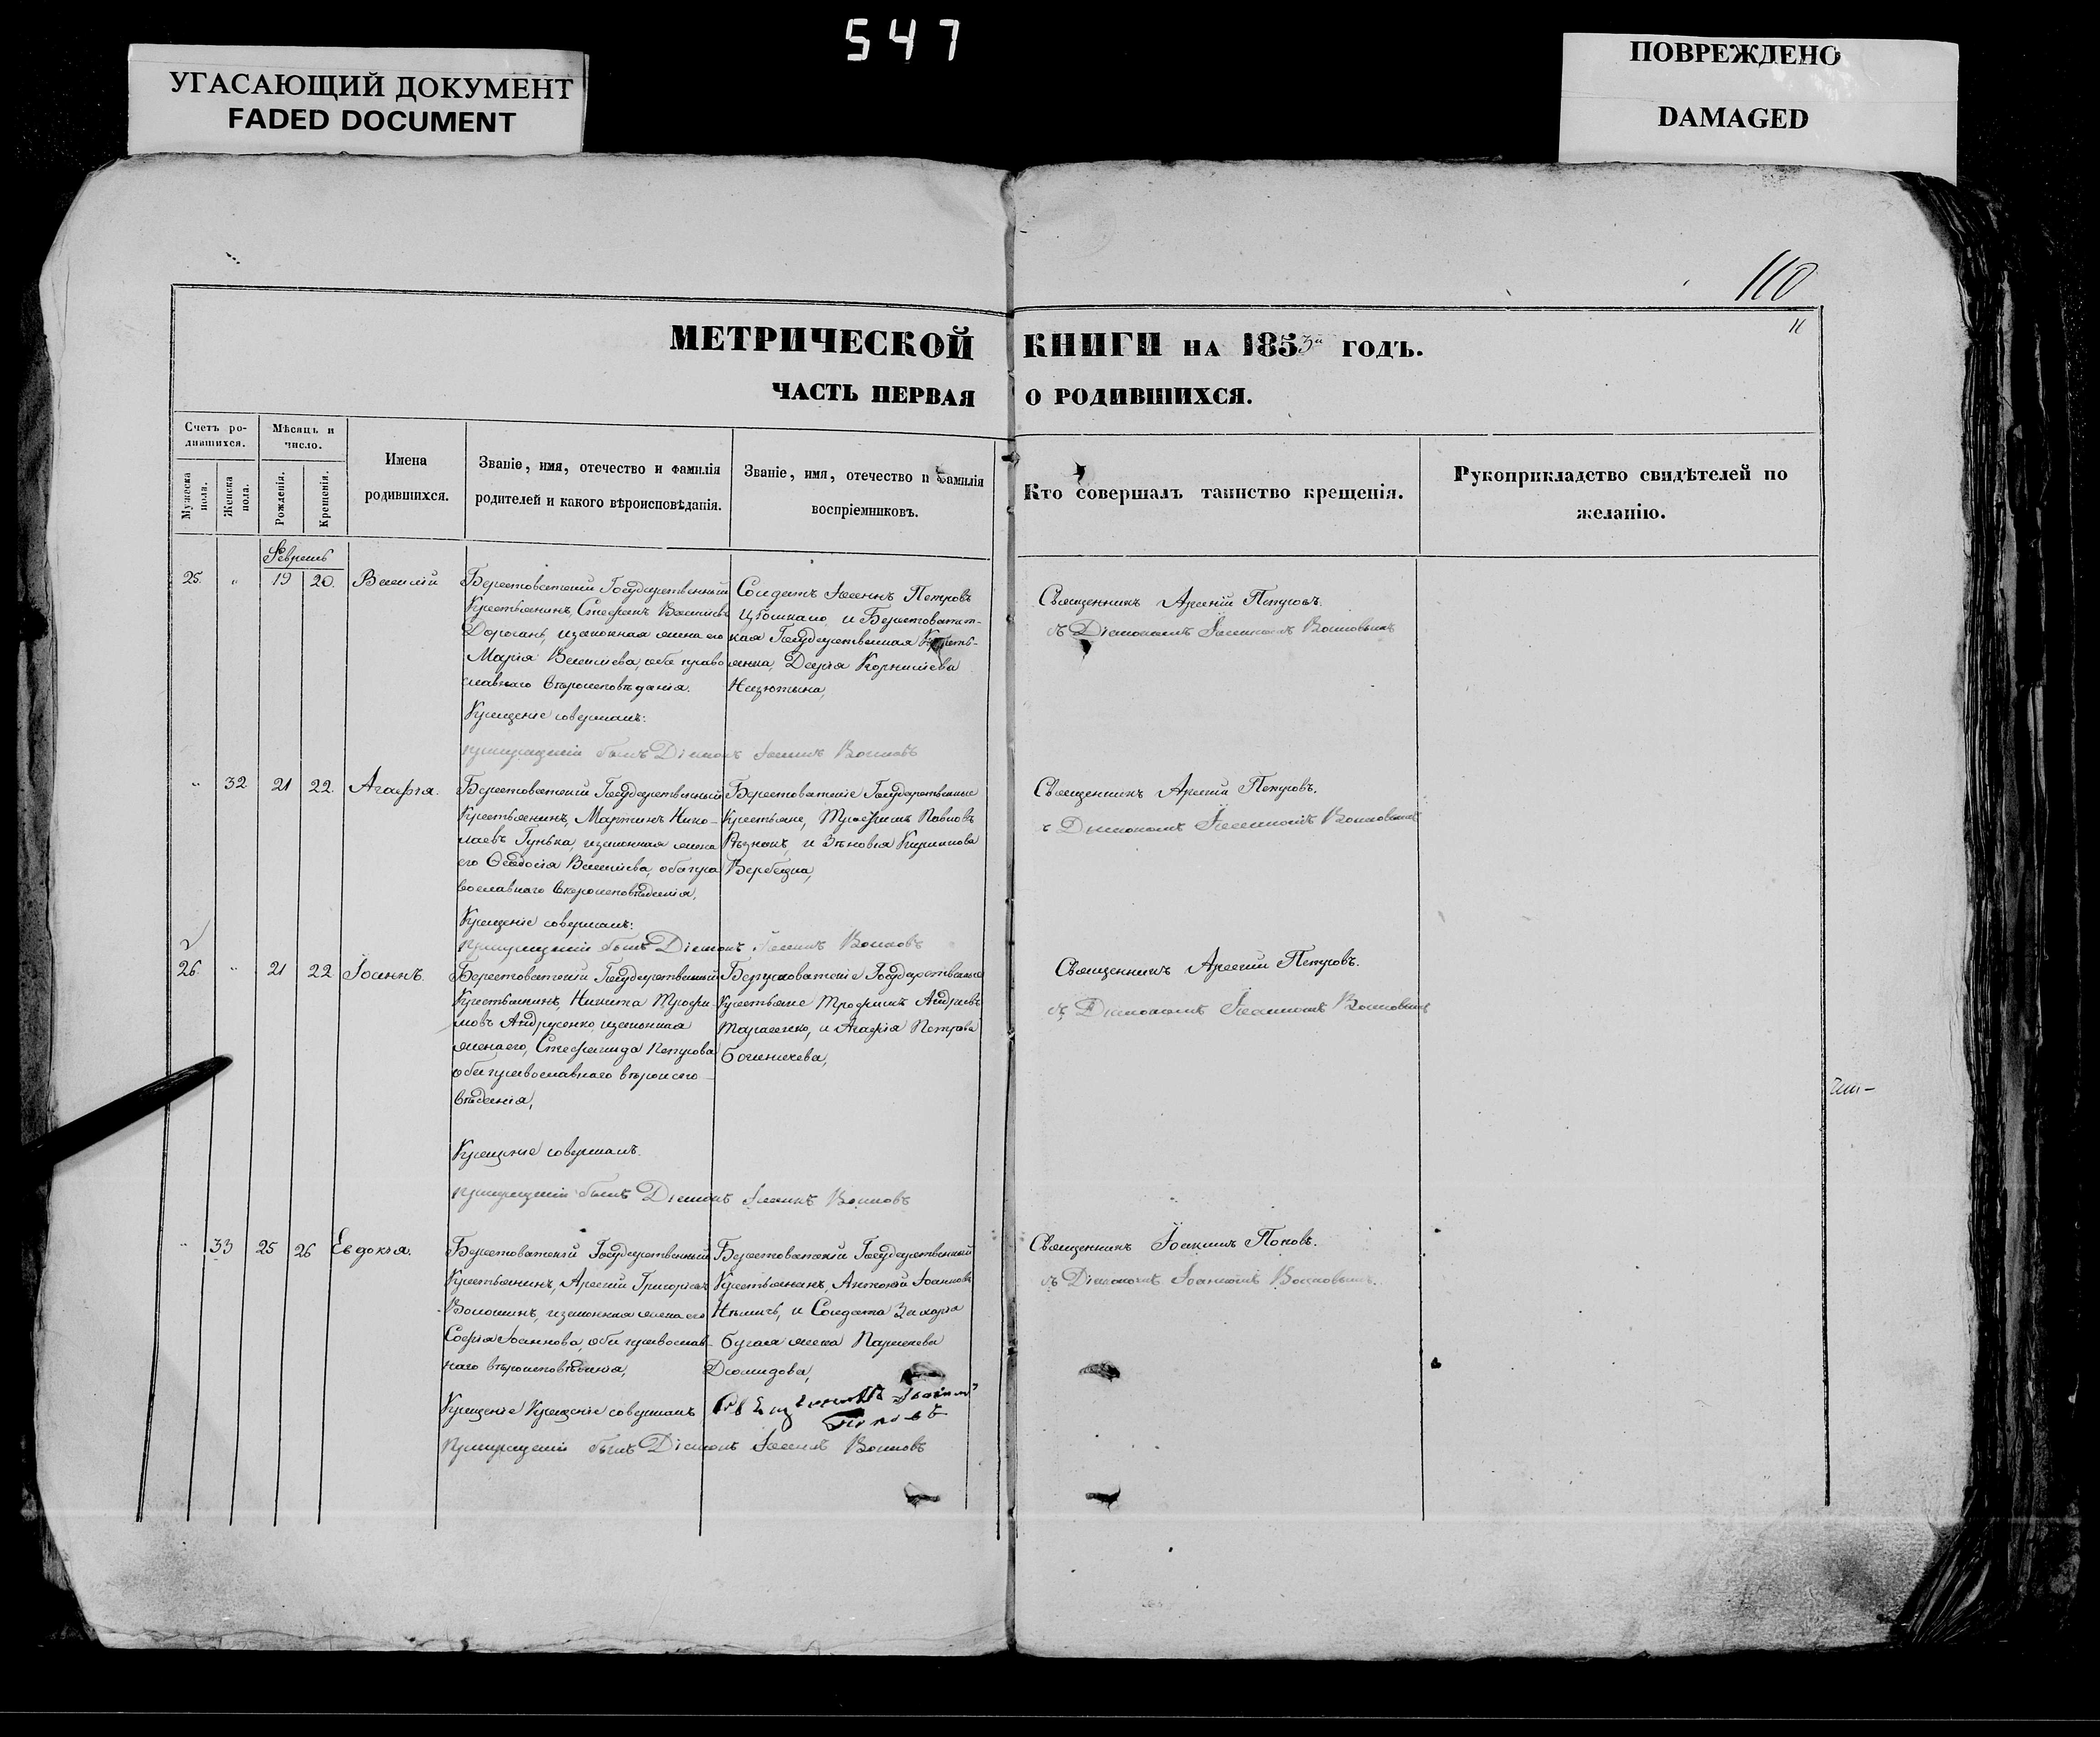 547
УГАСАЮЩИЙ ДОКУМЕНТ
FADED DOCUMENT
ПОВРЕЖДЕНО
DAMAGED
110
11
МЕТРИЧЕСКОЙ КНИГИ НА 1853й ГОДЪ.
ЧАСТЬ ПЕРВАЯ О РОДИВШИХСЯ.
Счетъ ро-
дившихся.
Мужеска пола.
Женска пола.
Мѣсяцъ и
число.
Рожденія.
Крещенія.
Имена
родившихся.
Званіе, имя, отечество и фамилія
родителей и какого вѣроисповѣданія.
Званіе, имя, отечество и фамилія
воспріемниковъ.
Кто совершалъ таинство крещенія.
Рукоприкладство свидѣтелей по
желанію.
Февраль
25. " 19 20. Василій
Берестоватскій Государственный
Крестьянинъ, Стефанъ Василіевъ
Дорошъ, и законная жена его
Марія Василіева, оба право
славнаго вѣроисповѣданія.
Крещеніе совершалъ:
при крещеніи былъ Діаконъ Іоаннъ Волковъ
Солдатъ Іоаннъ Петровъ
и Берестоват-
ская Государственная Кресть-
янка, Дарія Корниліева
Священникъ Арсеній Петровъ.
съ Діакономъ Іоанномъ Волковымъ
" 32 21 22. Агафія.
Берестоватскій Государственный
Крестьянинъ, Мартинъ Нико-
лаевъ Гунька, и законная жена
его Ѳеодосія Василіева, оба пра
вославнаго вѣроисповѣданія,
Крещеніе совершалъ:
при крещеніи былъ Діаконъ Іоаннъ Волковъ
Берестоватскіе Государственные
Крестьяне, Трофимъ Павловъ
и Зѣновія Кирилова
Вербецка,
Священникъ Арсеній Петровъ.
съ Діакономъ Іоанномъ Волковымъ
26. " 21 22 Іоаннъ.
Берестоватскій Государственный
Крестьянинъ, Никита Трофи-
мовъ Андрусенко, и законная
жена его, Стефанида Петрова
оба православнаго вѣроиспо-
вѣданія,
Крещеніе совершалъ.
при крещеніи былъ Діаконъ Іоаннъ Волковъ
Берестоватскіе Государственные
Крестьяне Трофимъ Андріевъ
Тарасенко, и Агафія Петрова
Священникъ Арсеній Петровъ.
съ Діакономъ Іоанномъ Волковымъ
" 33 25 26 Евдокія.
Берестоватскій Государственный
Крестьянинъ, Арсеній Григоріевъ
Волошинъ, и законная жена его
Софія Іоаннова, оба православ-
наго вѣроисповѣданія,
Крещеніе Крещеніе совершалъ Священникъ Іоакимъ
Поповъ
При крещеніи былъ Діаконъ Іоаннъ Волковъ
Берестоватскій Государственный
Крестьянинъ, Антоній Іоанновъ
и Солдата Захарія
Бугая жена
Діомидова,
Священникъ Іоакимъ Поповъ.
съ Діакономъ Іоанномъ Волковымъ.